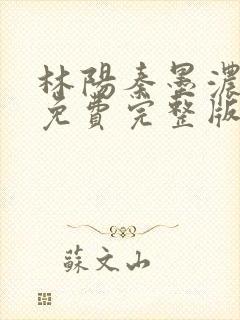 林陽秦墨濃
免費完整版
蘇文山